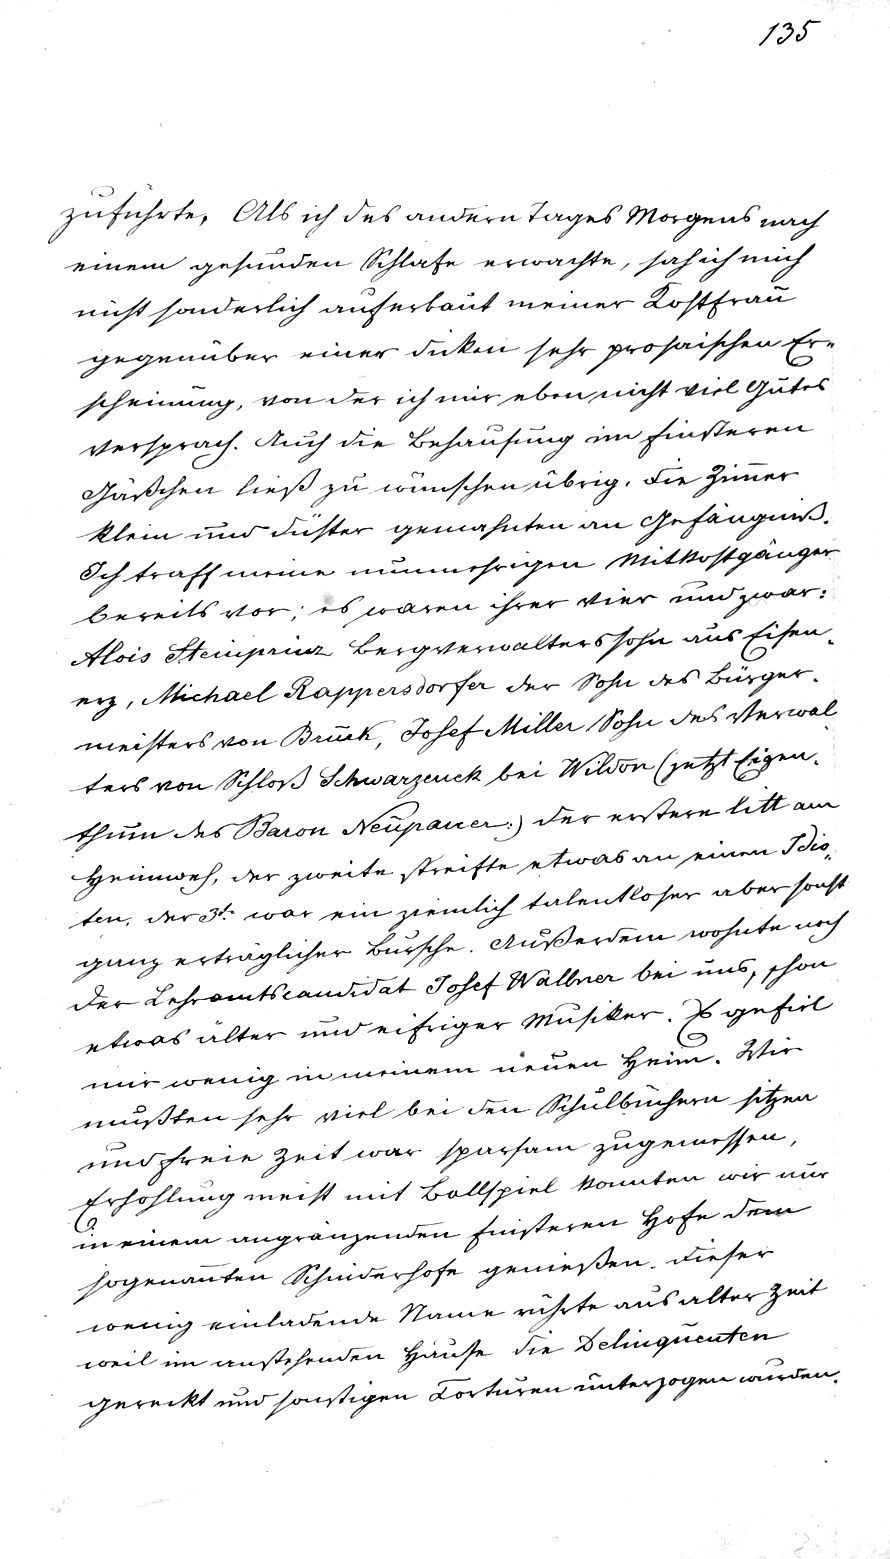 135
zuführte. Als ich des andern Tages Morgens nach
einem gesunden Schlafe erwachte, sah ich mich
nicht sonderlich auferbaut meiner Kostfrau
gegenüber einer dicken sehr prosaischen Er-
scheinung, von der ich mir eben nicht viel Gutes
versprach. Auch die Behausung im finsteren
Gäßchen ließ zu wünschen übrig. Die Zimmer
klein und düster gemahnten an Gefängniß.
Ich traff meine nunmehrigen Mitkostgänger
bereits vor; es waren ihrer vier und zwar:
Alois Steinprinz Bergverwalterssohn aus Eisen-
erz, Michael Rappersdorfer der Sohn des Bürger-
meisters von Bruck, Josef Miller Sohn des Verwal-
ters von Schloß Schwarzeneck bei Wildon (jetzt Eigen-
thum des Baron Neupauer:) der erstere litt am
Heimweh, der zweite streifte etwas an einen Idio-
ten, der 3te war ein ziemlich talentloser aber sonst
ganz erträglicher Bursche. Außerdem wohnte noch
der Lehramtscandidat Josef Wallner bei uns, schon
etwas älter und eifriger Musiker. Es gefiel
mir wenig in meinem neuen Heim. Wir
mußten sehr viel bei den Schulbüchern sitzen
und freie Zeit war sparsam zugemessen,
Erhohlung meist mit Ballspiel konnten wir nur
in einem angränzenden finsteren Hofe dem
sogenannten Schinderhofe genießen. Dieser
wenig einladende Name rührte aus alter Zeit
weil im anstehenden Hause die Delinquenten
gereckt und sonstigen Torturen unterzogen wurden.